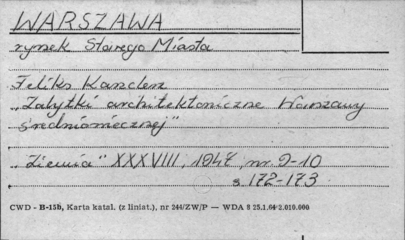 WARSZAWA
rynek Starego Miasta
Feliks Kanclerz
"Zabytki architektoniczne Warszawy
średniowiecznej"
"Ziemia" XXXVIII, 1947, nr 9-10
s. 172-173
CWD - B-15b, Karta katal. (z liniat.), nr 244/ZW/P — WDA 8 25.1.64 2.010.000